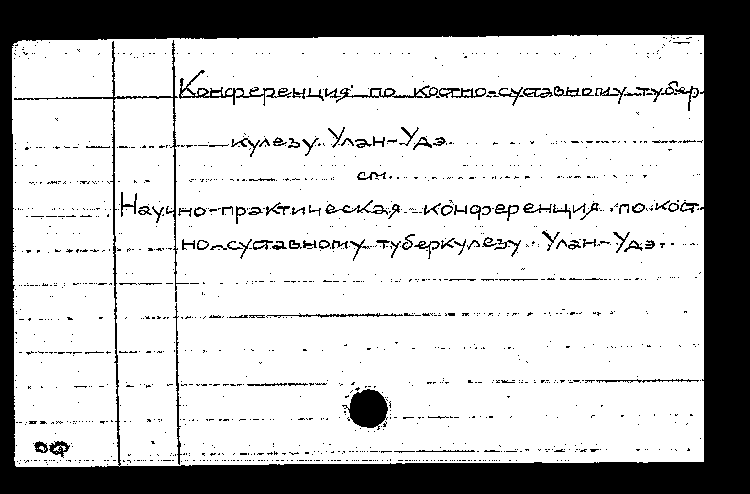 Конференция по костно-суставному тубер-
кулезу. Улан-Удэ.
см.
Научно-практическая конференция по кост-
но-суставному туберкулезу. Улан-Удэ.